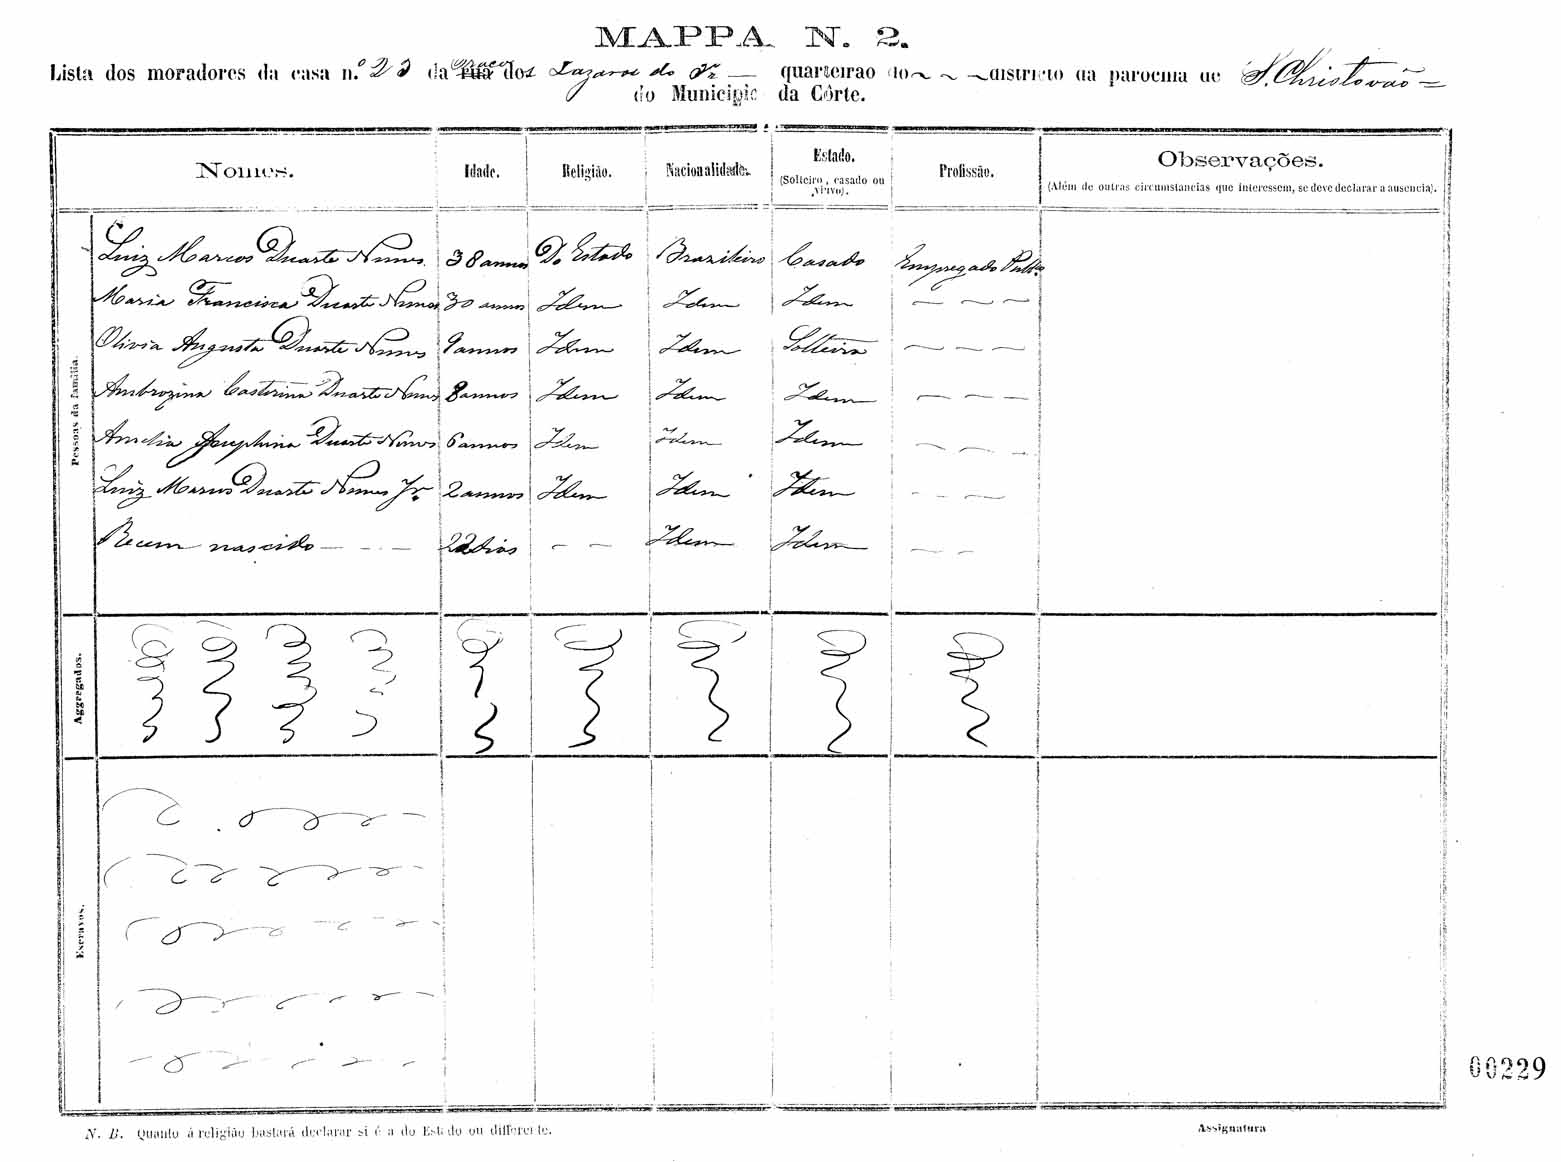 MAPPA N. 2.
Lista dos moradores da casa n.º 23 da rua Praça dos Lazaros do quarteirão do districto da parochia de S. Christovão
do Municipio da Côrte.
Nomes. Idade. Religião. Nacionalidade. Estado. Profissão. Observações.
(Solteiro, casado ou viuvo). (Além de outras circumstancias que interessem, se deve declarar a ausencia).
Pessoas da familia.
Luiz Marcos Duarte Nunes 38 annos Do Estado Brazileiro Casado Empregado Pub.co
Maria Francisca Duarte Nunes 30 annos Idem Idem Idem — — —
Olivia Augusta Duarte Nunes 9 annos Idem Idem Solteira — — —
Ambrozina Duarte Nunes 8 annos Idem Idem Idem — — —
Amelia Josephina Duarte Nunes 6 annos Idem Idem Idem — — —
Luiz Marcos Duarte Nunes Jr. 2 annos Idem Idem Idem — — —
Recem nascido — — — 22 dias — — Idem Idem — — —
Aggregados.
Escravos.
00229
N. B. Quanto á religião bastará declarar si é a do Estado ou differente.
Assignatura